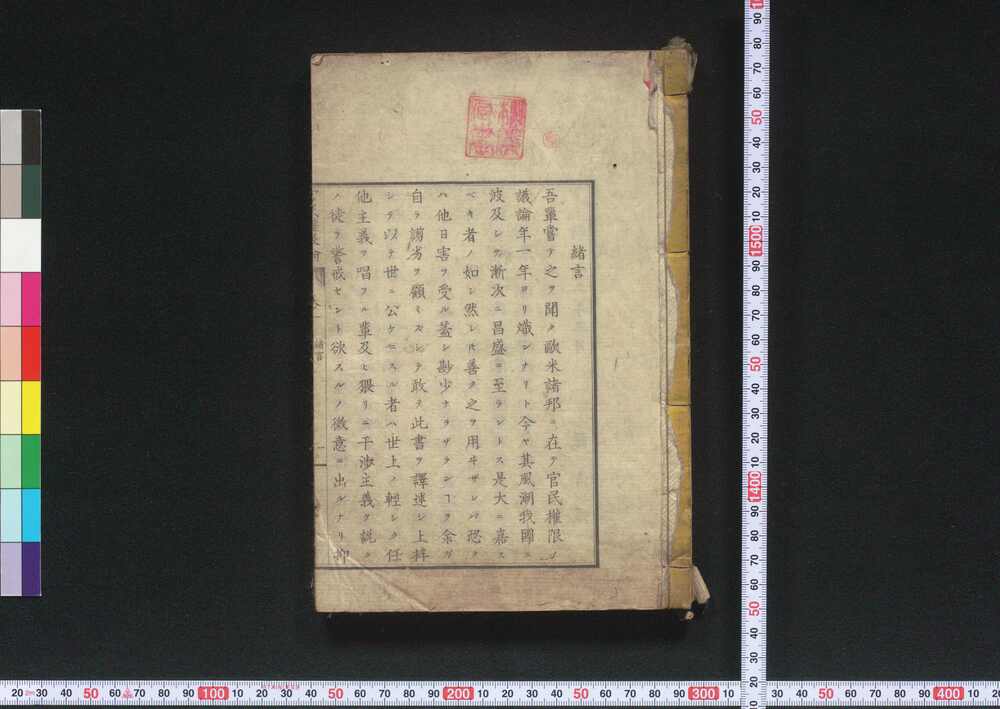 緒言
吾輩嘗テ之ヲ聞ク歐米諸邦ニ在テ官民權限ノ
議論年一年ヨリ熾ンナリト今ヤ其風潮我國ニ
波及シテ漸次ニ昌盛ニ至ラントス是大ニ嘉ス
ベキ者ノ如シ然レ𪜈善ク之ヲ用ヰザレバ恐ク
ハ他日害ヲ受ル蓋シ尠少ナラザランヿヲ余ガ
自ラ謭劣ヲ顧ミズシテ敢テ此書ヲ譯述シ上梓
シテ以テ世ニ公ケニスル者ハ世上ノ輕シク任
他主義ヲ唱フル輩及ヒ猥リニ干渉主義ヲ説ク
ノ徒ヲ警戒セント欲スルノ微意ニ出ルナリ抑
緒言